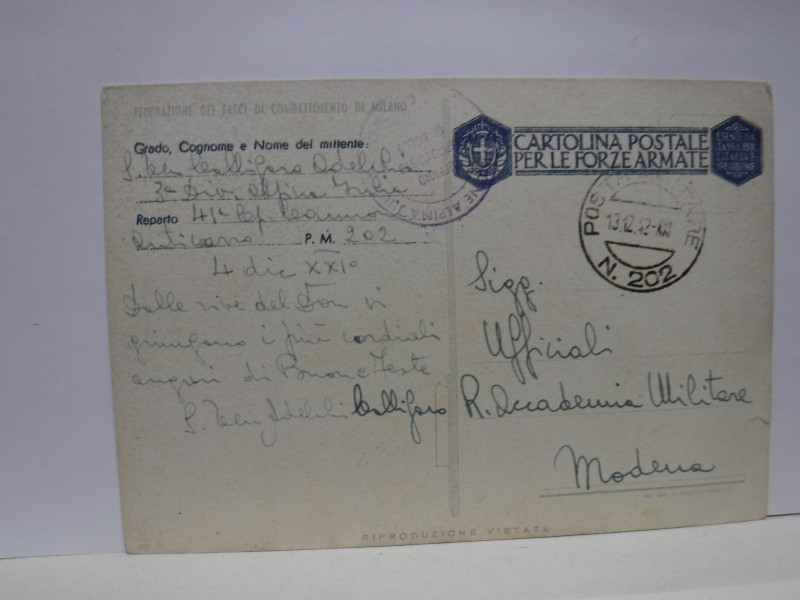 FEDERAZIONE DEI FASCI DI COMBATTIMENTO DI MILANO
Grado, Cognome e Nome del mittente:
S. Ten Calligaro Adelchi
3a Div. Alpina Julia
Reparto 41a Cp. Cannoni
Anticarro P. M. 202
4 dic XXI°
Dalle rive del Don vi
giungano i più cordiali
auguri di Buone Feste
S. Ten Adelchi Calligaro
CARTOLINA POSTALE
PER LE FORZE ARMATE
POSTA MILITARE
13.12.42-XXI
N. 202
Sigg.
Ufficiali
R. Accademia Militare
Modena
RIPRODUZIONE VIETATA